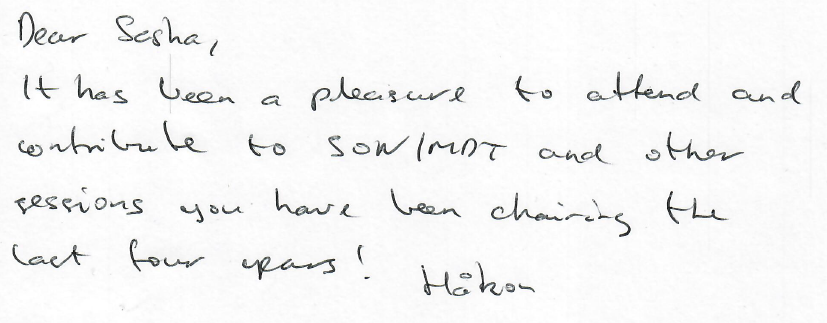 Dear Sasha,
It has been a pleasure to attend and
contribute to SOW/MDT and other
sessions you have been chairing the
last four years!
Håkon